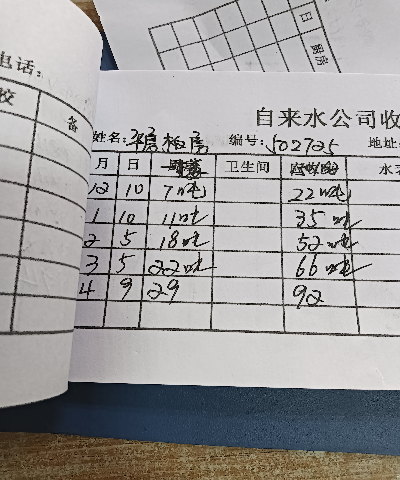 电话:
校
备
日
自来水公司收
姓名: 编号: 502725 地址
月 日 卫生间 水
12 10 7吨 22吨
1 10 11吨 35吨
2 5 18吨 52吨
3 5 22吨 66吨
4 9 29 92